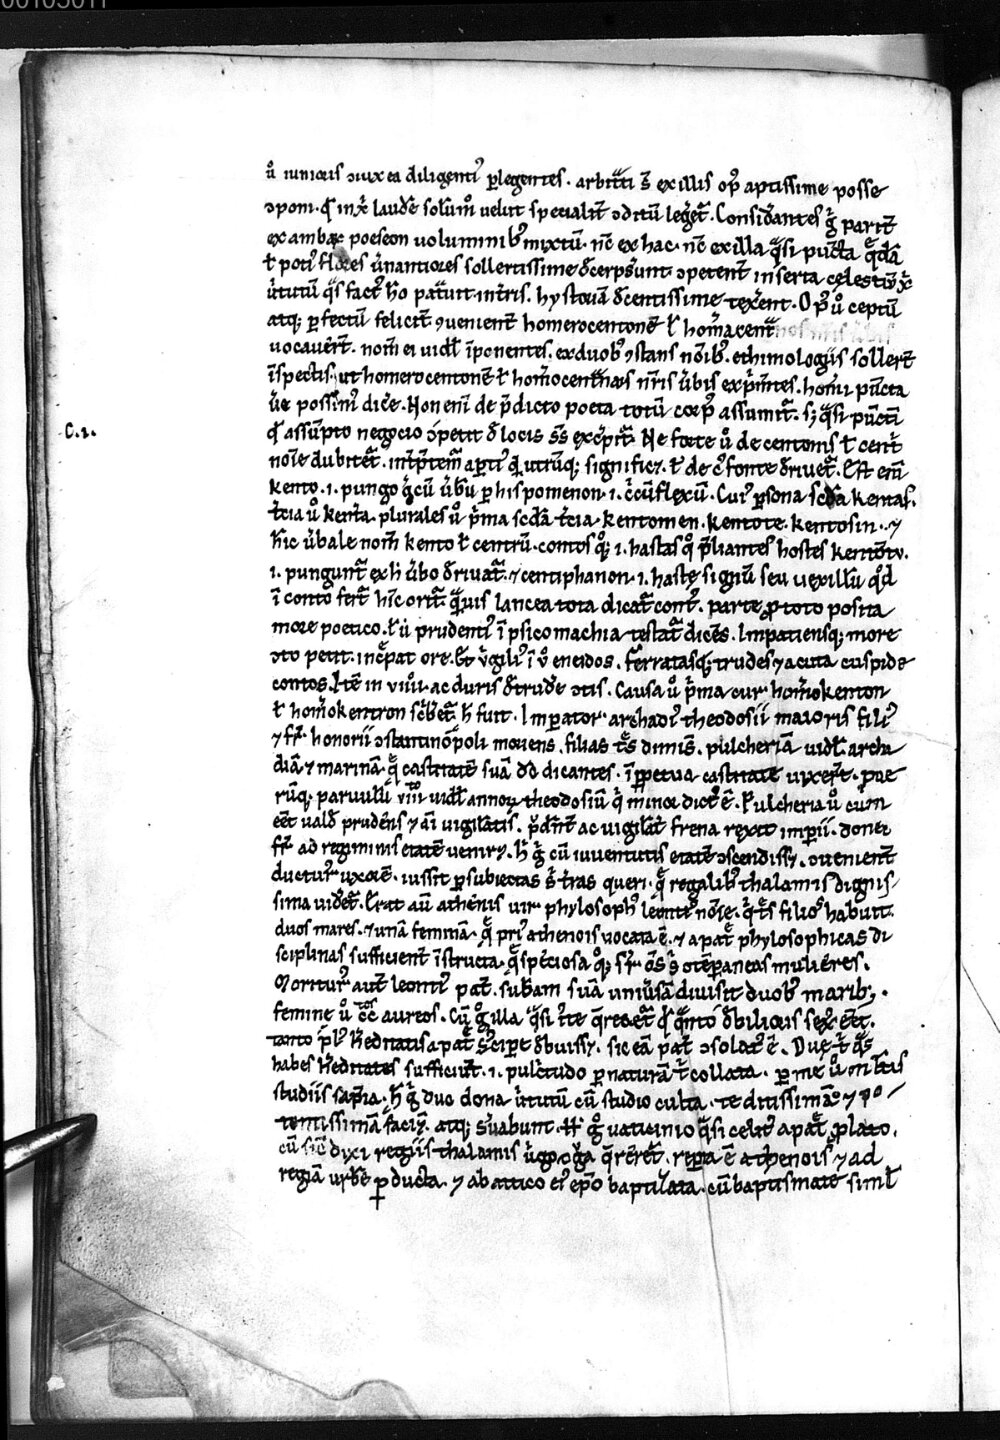 00103011
uͦ iunioris ɔiux ea diligentiꝰ ꝑlegentes. arbitͣti sͭ ex illis opꝰ aptissime posse
ɔponi. qͥ in xp̄i laude solūm̄ uelut specialit̄ ɔditū leget̄. Considantes gͦ parit̄
ex ambaꝝ poeseon uoluminibꝰ mixtū. nc̄ ex hac. nc̄ ex illa qͣsi pūcta qͣdā
ł potiꝰ flores uͦnantiores sollertissime dc̄erpsunt. ɔpetent̄ inserta celestiū xp̄i
uͥtutū qͣs facť hō pat̄uit in tr̄is. hystoriā dc̄entissime texer̄ent. Opꝰ uͦ ceptū
atqꝫ ꝑfectū felicit̄ ꝯuenient̄ homerocentonē ł homͦacent
uocauēr̄t. nom̄ ei uidł īponentes. ex duobꝰ ꝯstans nōibꝰ. ethimologiis sollert̄
īspectis. ut homerocentonē ł homͦocentͥnas nr̄is uͥbis expͥmtes. homͥi pūcta
uͥe possimꝰ dic̄e. Non enī de p̄dicto poeta totū corpꝰ assumit̄. sꝫ qͣsi pūctī
qͥ assūpto negocio ɔpetit d̄ locis ss̄ exc̄pit̄. Ne forte uͦ de centonis ł cent̄
C. 2.
nōie dubitet̄. int̄p̄tem̄ apertiꝰ qͥ utrūqꝫ significꝫ. ł de cͥ fonte d̄riuet̄. Est enī
kento .i. pungo qͥcū uͥbū ꝑhispomenon .i. cͥcūflexū. Cuiꝰ ꝑsona scd̄a kentas.
t̄cia uͦ kenta. plurales uͦ pͥma scd̄a t̄cia. kentomen. kentote. kentosin. ⁊
hͥc uͥbale nom̄ kento ł centrū. contos qͦꝫ .i. hastas qͦ p̄liantes hostes
.i. pungunt̄ ex hͦ uͥbo d̄riuat̄. ⁊ centiphanon .i. haste signū seu uexillū qͦd
ī conto fert̄ hīc orit̄. qͣuis lancea tota dicat̄ contꝰ. parte ꝓ toto posita
more poetico. ł ū prudentiꝰ ī psicomachia testat̄ dicēs. Impatiensqꝫ more
ɔto petit. inc̄pat ore. Et uͥgiliꝰ ī vͦ eneidos. ferratasqꝫ trudes ⁊ acuta cuspide
contos. Itē in viiii. ac duris d̄trude ɔtis. Causa uͦ pͥma cur homͦokenton
ł homͦokentron scͥbet̄ hͦ fuit. Imperator archadiꝰ theodosii maioris filiꝰ
⁊ fr̄. honorii ɔstantinōpoli moriens. filias t̄s dimis̄. pulcheriā uidł. archa
diā ⁊ marinā. qͣ castitatē suā dō dicantes. ī ꝑpetua castitate uixer̄t. pue
rūqꝫ paruulū viii uidł annoꝝ theodosiū qͥ minor dictꝰ ē. Pulcheria uͦ cum
eēt uald̄ prudens ⁊ aī uigilātis. p̄dn̄t ac uigilat̄ frena rexit imperii. donec
fr̄ ad regiminis etatē ueniret. hͥ gͦ cū iuuentutis etatē ɔscendissꝫ. ɔuenient̄
ducturꝰ uxorē. iussit ꝑ subiectas sͥ tr̄as queri. qͣ regalibꝰ thalamis dignis
sima uidet̄. Erat aū athenis uir phylosophꝰ leontiꝰ nōie. qͥ t̄s filios habuit.
duos mares. ⁊ unā feminā. qͣ priꝰ athenois uocata ē. ⁊ a pat̄ phylosophicas di
sciplinas sufficient̄ īstructa. qͣ speciosa qͦꝫ sr̄ ōs sͥ ɔtēporaneas mulieres.
Moriturꝰ aut̄ leontiꝰ pat̄. subam suā uniuͥsā diuisit duobꝰ maribꝫ.
femine uͦ cͦc̄ aureos. Cū gͦ illa qͣsi iͥte qͣreret̄ qͥ qͣnto d̄bilioris sexꝰ eēt.
tanto plꝰ hͥeditatis a pat̄ sͥcipe d̄buissꝫ. sic eā pat̄ ɔsolatꝰ ē. Due t̄ qͣs
habes hͥeditates sufficiūt .i. pulcͥtudo ꝑ naturā t̄ collata. ꝑ me uͦ mͣltis
studiis sapīa. hͥ gͦ duo dona uͥtutū cū studio culta. te ditissimā ⁊ po
tentissimā faciꝫ. atqꝫ sͥuabunt. Hͥ gͦ uaticinio qͣsi celitꝰ a pat̄ ꝓlato.
cū sic̄ dixi regiis thalamis uͥgo ɔgͥa qͣreret̄. repͥta ē athenois ⁊ ad
regiā urbē ꝑducta. ⁊ ab attico eiꝰ epō baptizata. cū baptismate simł